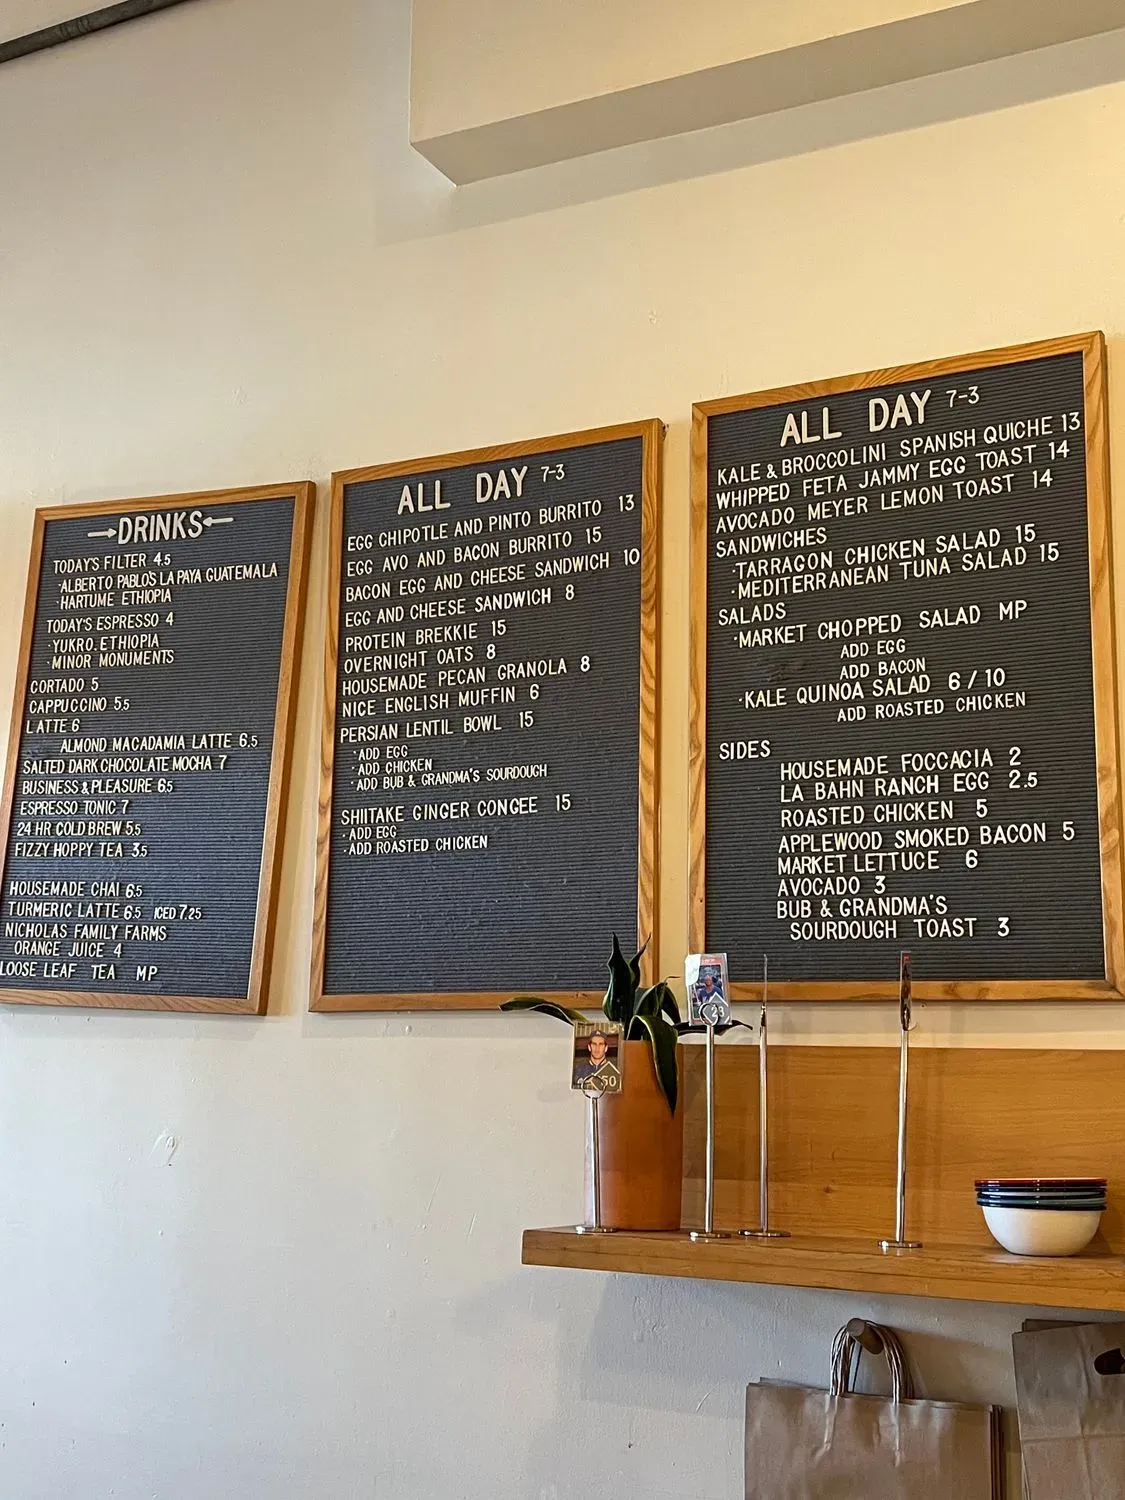 →DRINKS←
TODAY'S FILTER 4.5
·ALBERTO PABLO'S LA PAYA GUATEMALA
·HARTUME ETHIOPIA
TODAY'S ESPRESSO 4
·YUKRO, ETHIOPIA
·MINOR MONUMENTS
CORTADO 5
CAPPUCCINO 5.5
LATTE 6
ALMOND MACADAMIA LATTE 6.5
SALTED DARK CHOCOLATE MOCHA 7
BUSINESS & PLEASURE 6.5
ESPRESSO TONIC 7
24 HR COLD BREW 5.5
FIZZY HOPPY TEA 3.5
HOUSEMADE CHAI 6.5
TURMERIC LATTE 6.5 ICED 7.25
NICHOLAS FAMILY FARMS
ORANGE JUICE 4
LOOSE LEAF TEA MP
ALL DAY 7-3
EGG CHIPOTLE AND PINTO BURRITO 13
EGG AVO AND BACON BURRITO 15
BACON EGG AND CHEESE SANDWICH 10
EGG AND CHEESE SANDWICH 8
PROTEIN BREKKIE 15
OVERNIGHT OATS 8
HOUSEMADE PECAN GRANOLA 8
NICE ENGLISH MUFFIN 6
PERSIAN LENTIL BOWL 15
·ADD EGG
·ADD CHICKEN
·ADD BUB & GRANDMA'S SOURDOUGH
SHIITAKE GINGER CONGEE 15
·ADD EGG
·ADD ROASTED CHICKEN
ALL DAY 7-3
KALE & BROCCOLINI SPANISH QUICHE 13
WHIPPED FETA JAMMY EGG TOAST 14
AVOCADO MEYER LEMON TOAST 14
SANDWICHES
·TARRAGON CHICKEN SALAD 15
·MEDITERRANEAN TUNA SALAD 15
SALADS
·MARKET CHOPPED SALAD MP
ADD EGG
ADD BACON
·KALE QUINOA SALAD 6 / 10
ADD ROASTED CHICKEN
SIDES
HOUSEMADE FOCCACIA 2
LA BAHN RANCH EGG 2.5
ROASTED CHICKEN 5
APPLEWOOD SMOKED BACON 5
MARKET LETTUCE 6
AVOCADO 3
BUB & GRANDMA'S
SOURDOUGH TOAST 3
23
50